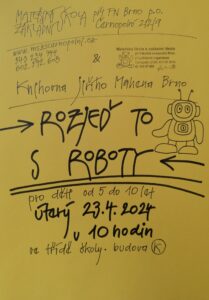 MATEŘSKÁ ŠKOLA při FN Brno p.o.
ZÁKLADNÍ Černopolní 212/9
www.mszscernopolni.cz
&
Mateřská škola a základní škola
Knihovna Jiřího Mahena Brno
ROZJEĎ TO
S ROBOTY
pro děti od 5 do 10 let
úterý 23.4.2024
v 10 hodin
ve třídě školy. budova K